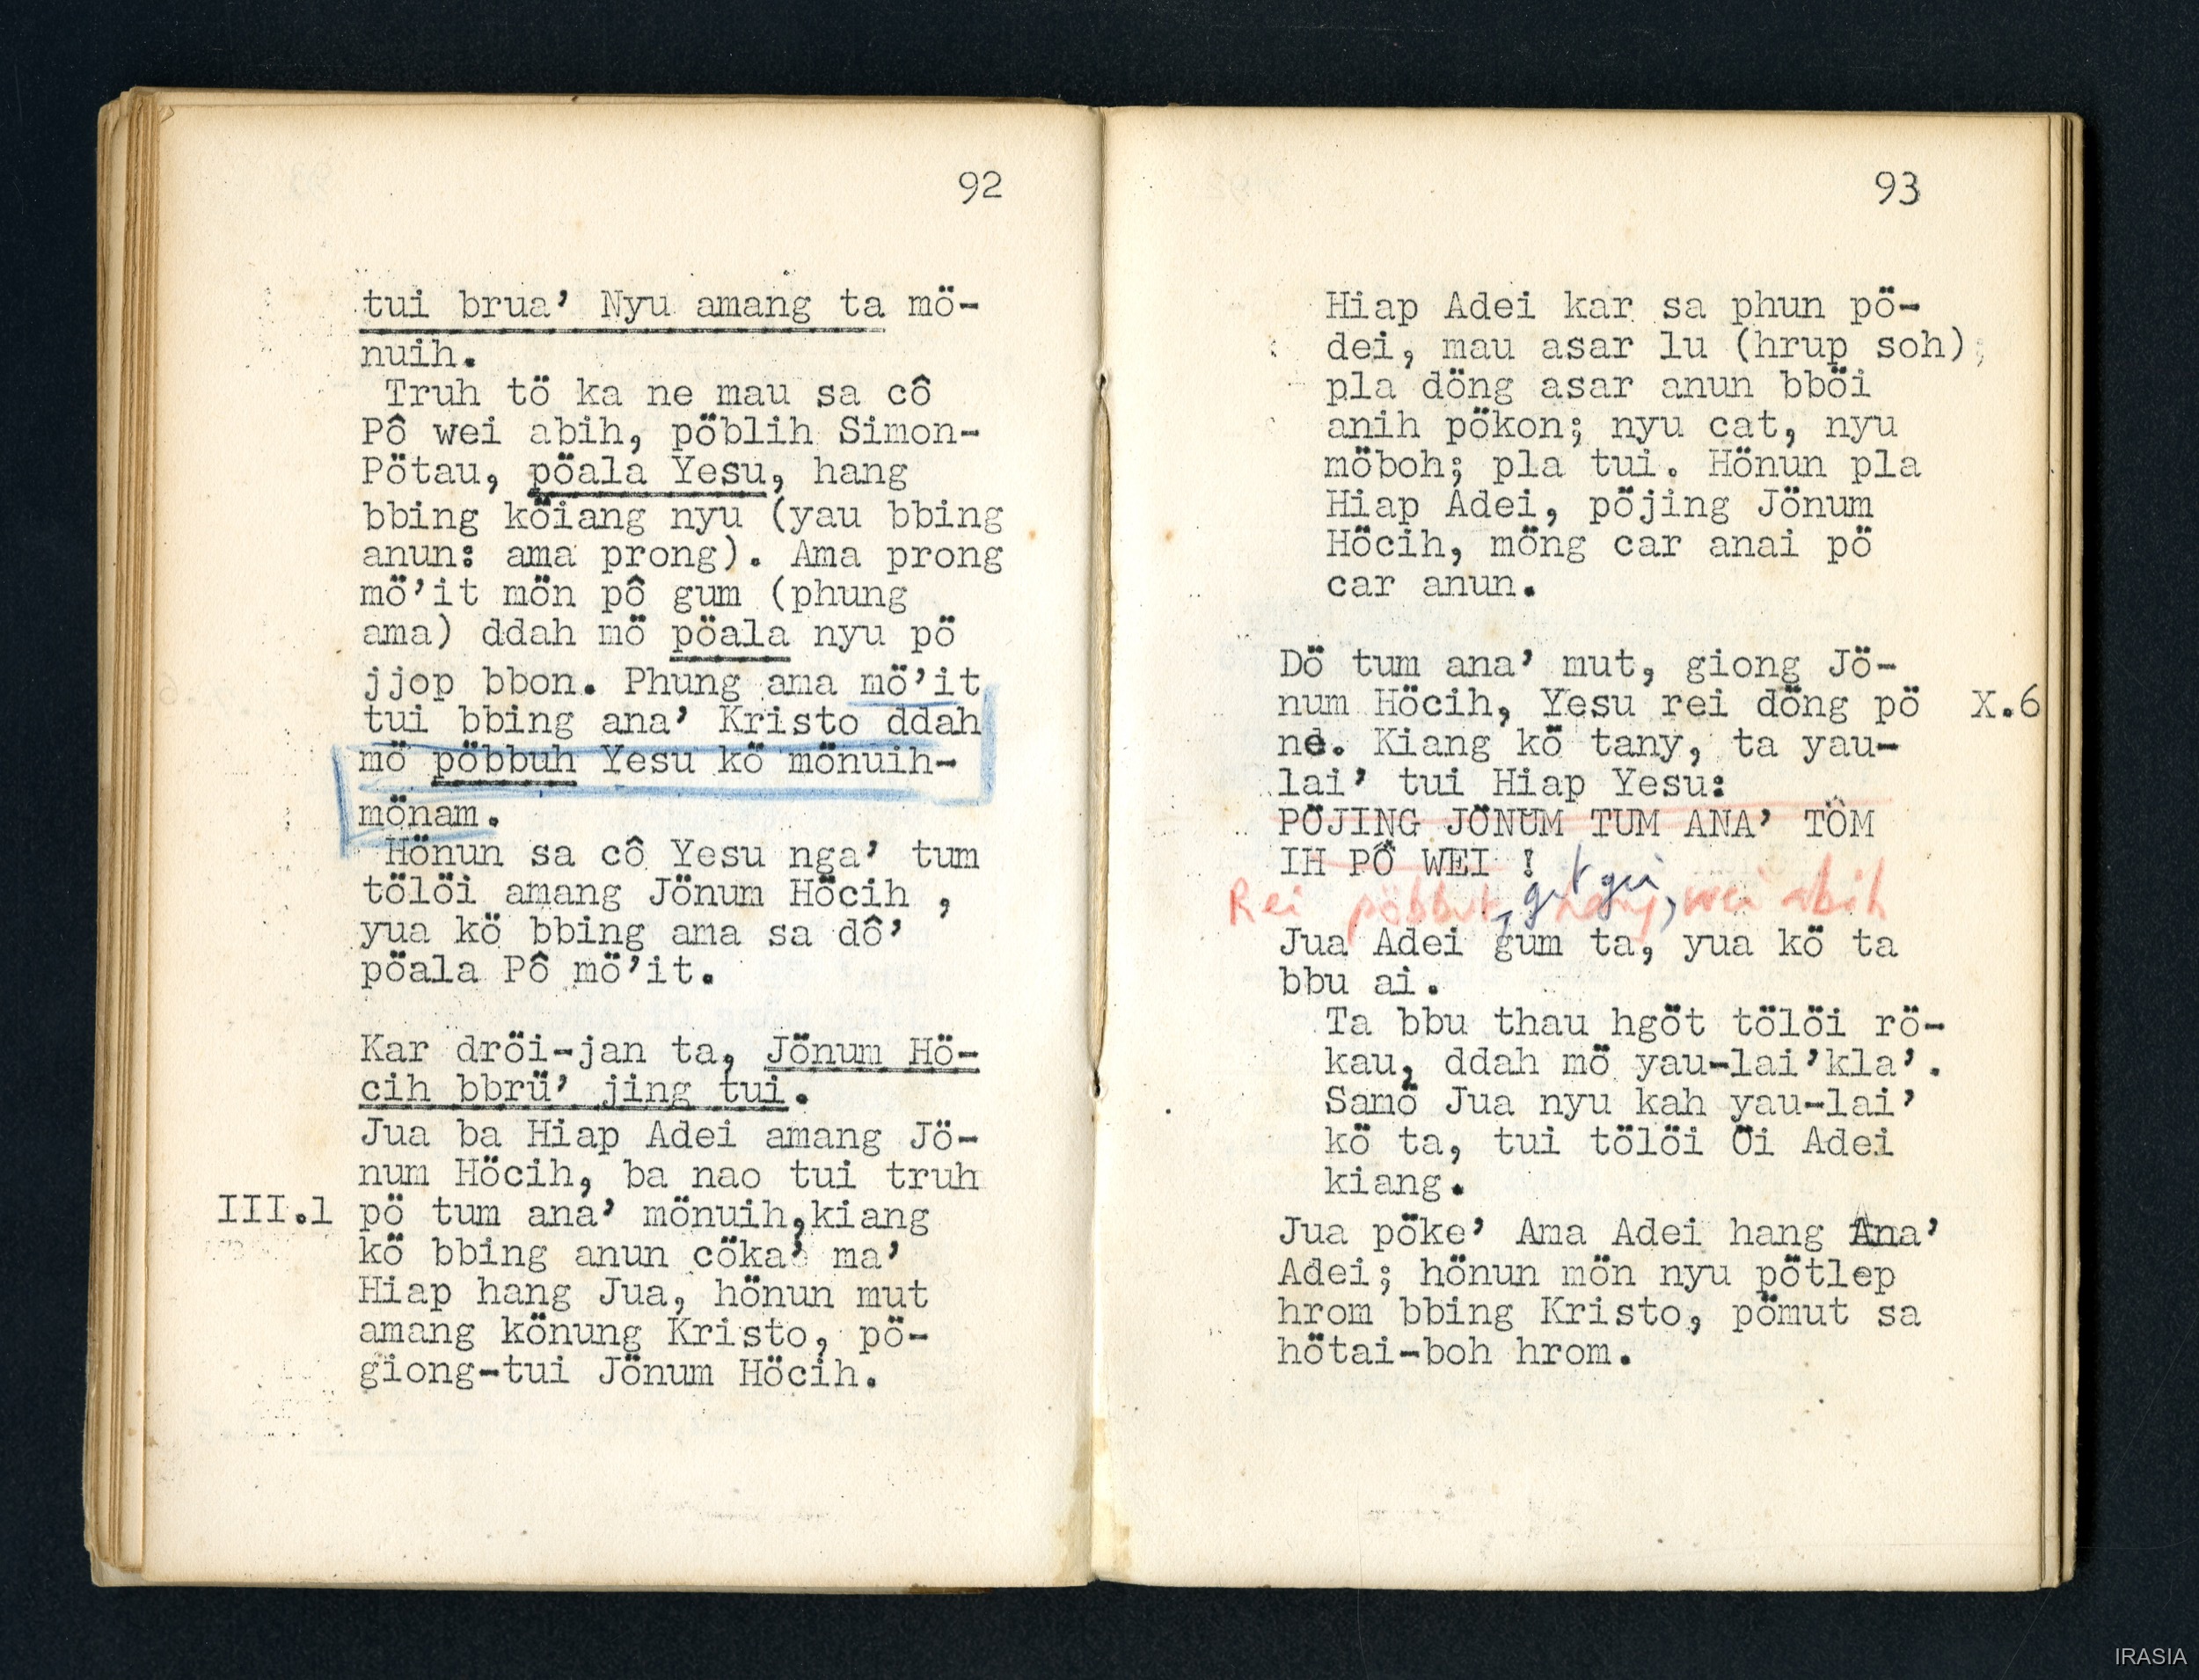 92
tui brua’ Nyu amang ta mö-
nuih.
Truh tö ka ne mau sa cô
Pô wei abih, pöblih Simon-
Pötau, pöala Yesu, hang
bbing köiang nyu (yau bbing
anun: ama prong). Ama prong
mö’it mön pô gum (phung
ama) ddah mö pöala nyu pö
jjop bbon. Phung ama mö’it
tui bbing ana’ Kristo ddah
mö pöbbuh Yesu kö mönuih-
mönam.
Hönun sa cô Yesu nga’ tum
tölöi amang Jönum Höcih ,
yua kö bbing ama sa dô’
pöala Pô mö’it.
Kar dröi-jan ta, Jönum Hö-
cih bbrü’ jing tui.
Jua ba Hiap Adei amang Jö-
num Höcih, ba nao tui truh
III.1 pö tum ana’ mönuih,kiang
kö bbing anun cöka’ ma’
Hiap hang Jua, hönun mut
amang könung Kristo, pö-
giong-tui Jönum Höcih.
93
Hiap Adei kar sa phun pö-
dei, mau asar lu (hrup soh);
pla döng asar anun bböi
anih pökon; nyu cat, nyu
möboh; pla tui. Hönun pla
Hiap Adei, pöjing Jönum
Höcih, möng car anai pö
car anun.
Dö tum ana’ mut, giong Jö-
num Höcih, Yesu rei döng pö X.6
ne. Kiang kö tany, ta yau-
lai’ tui Hiap Yesu:
PÖJING JÖNUM TUM ANA’ TÔM
IH PÔ WEI !
Rei wei abih
Jua Adei gum ta, yua kö ta
bbu ai.
Ta bbu thau hgöt tölöi rö-
kau, ddah mö yau-lai’kla’.
Samö Jua nyu kah yau-lai’
kö ta, tui tölöi Öi Adei
kiang.
Jua pöke’ Ama Adei hang Ana’
Adei; hönun mön nyu pötlep
hrom bbing Kristo, pömut sa
hötai-boh hrom.
IRASIA